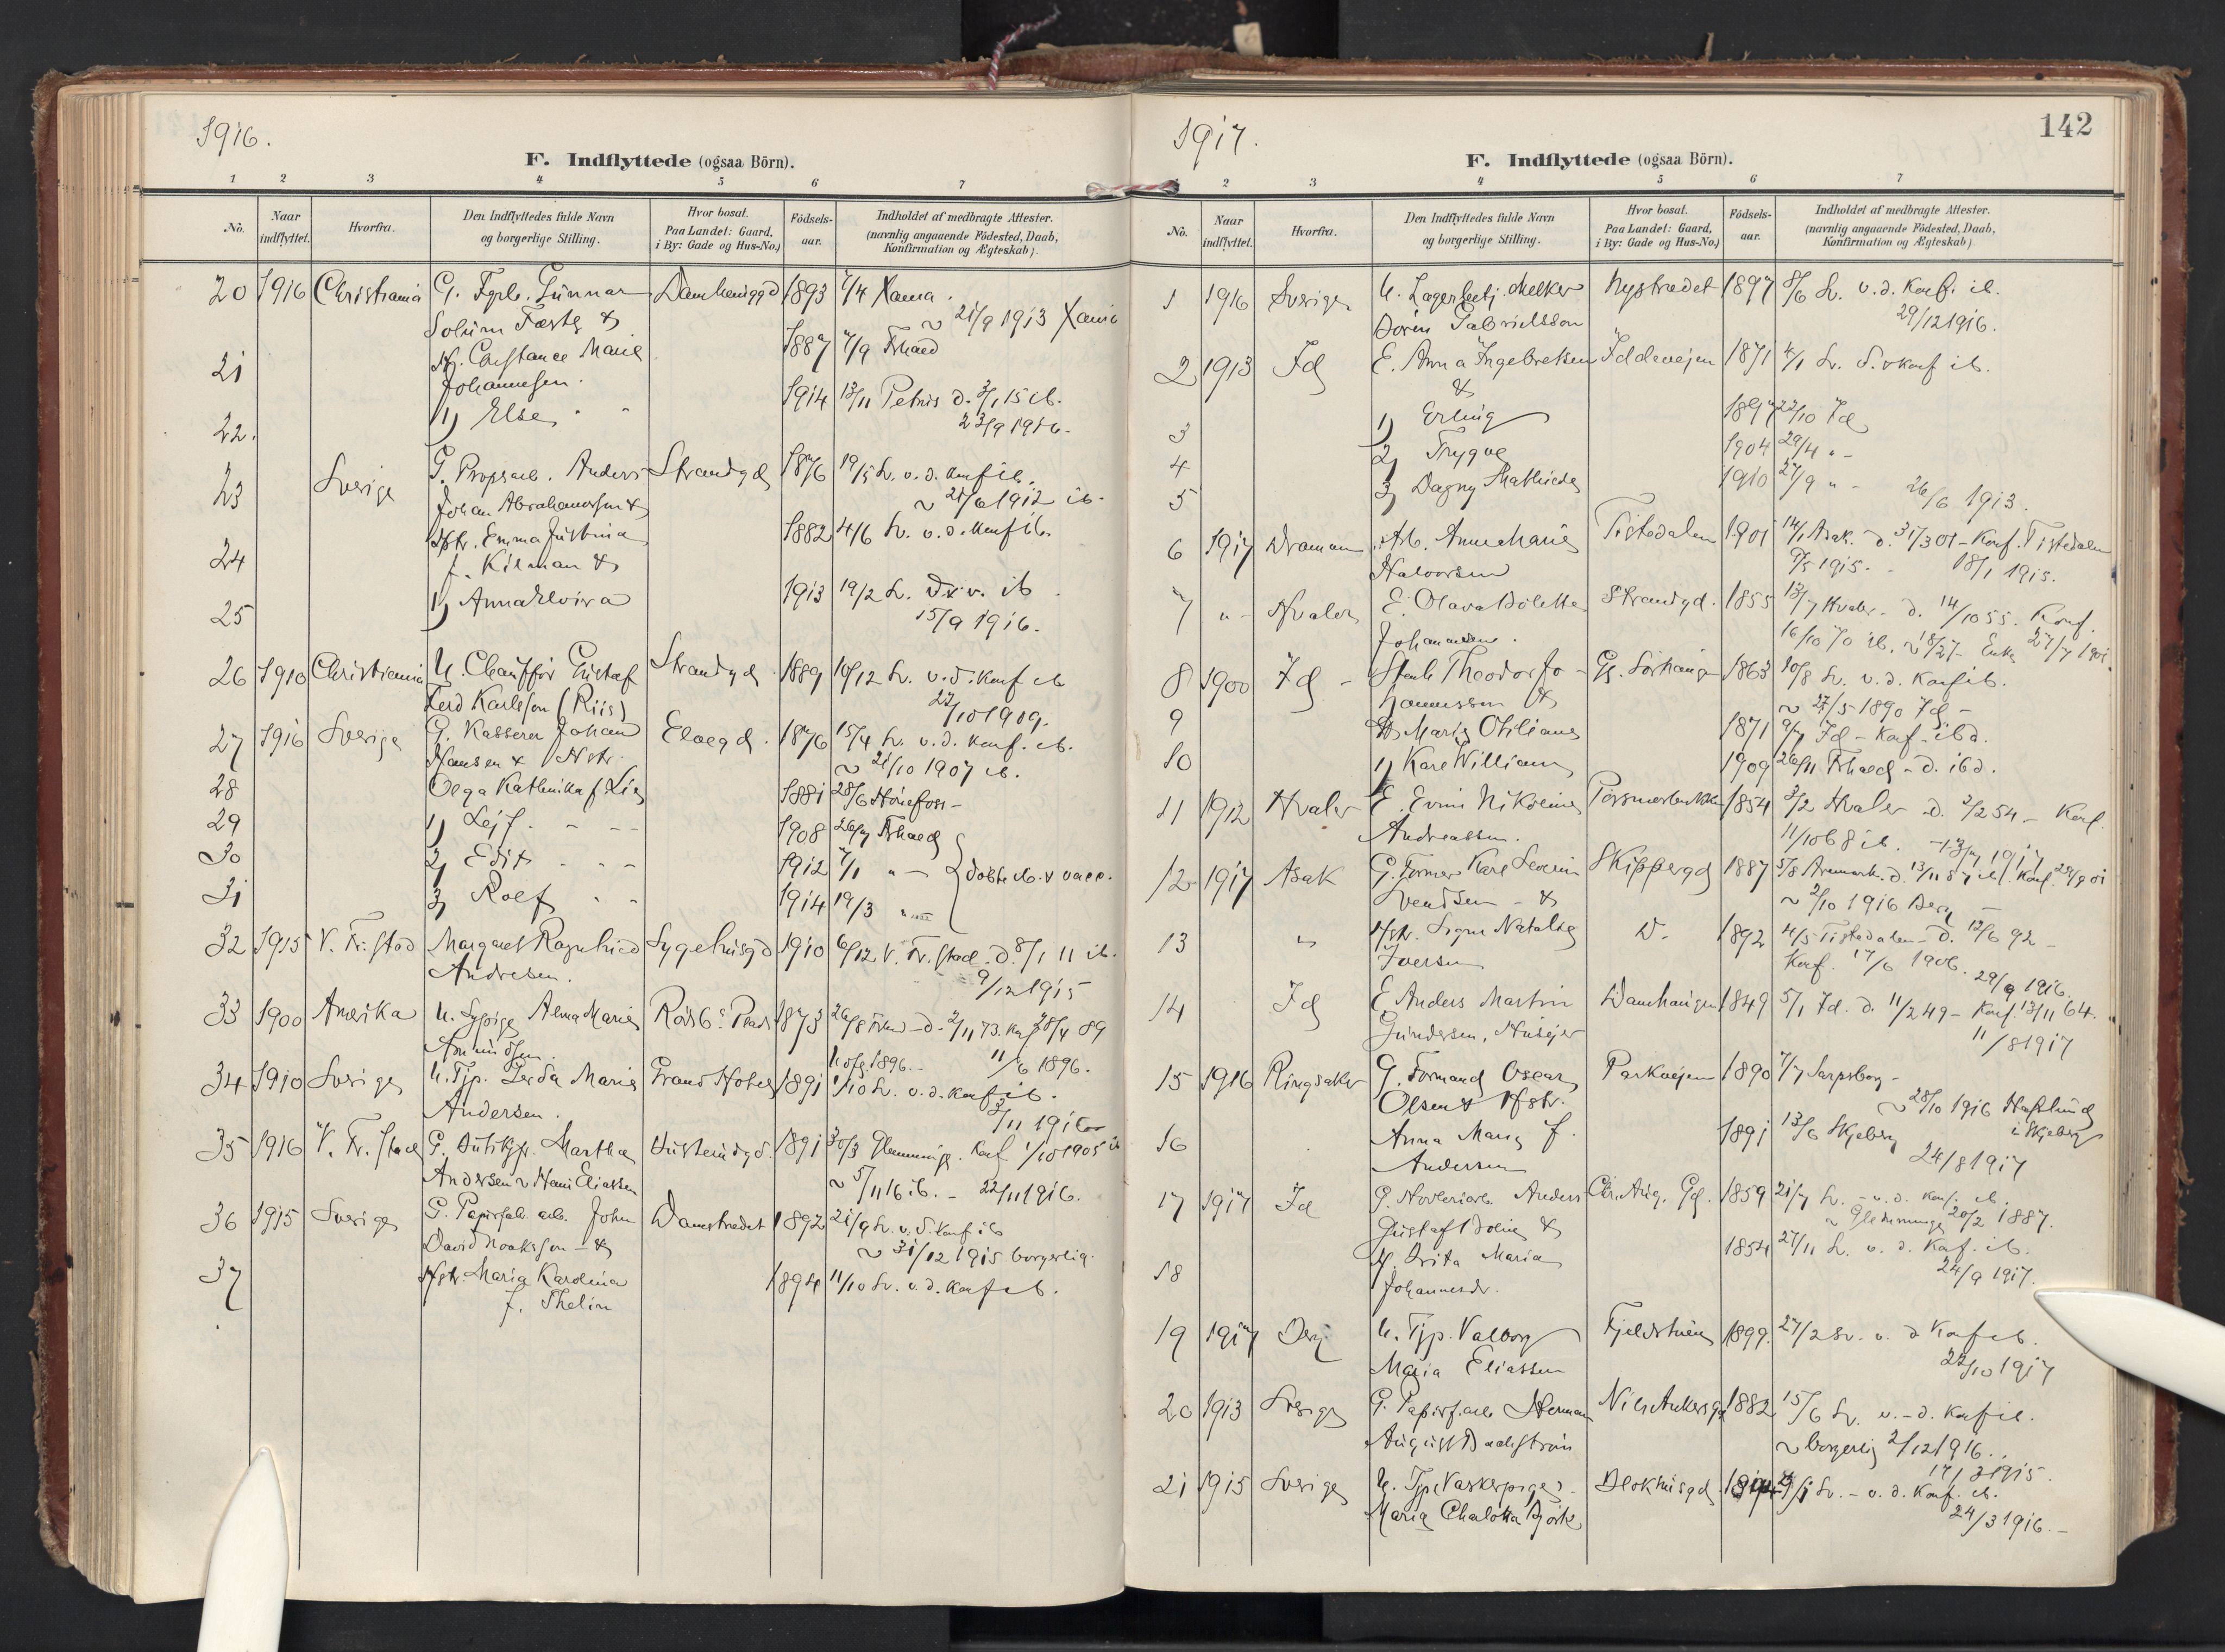 1916.
F. Indflyttede (ogsaa Börn).
1 2 3 4 5 6 7
No. Naar indflyttet. Hvorfra. Den Indflyttedes fulde Navn og borgerlige Stilling. Hvor bosat. Paa Landet: Gaard, i By: Gade og Hus-No.) Födsels-aar. Indholdet af medbragte Attester. (navnlig angaaende Födested, Daab, Konfirmation og Ægteskab).
20 1916 Christiania G. Gunnar 1893 7/4 Xania.
Solum & ~ 21/9 1913 Xania
21 Constance Marie 1887 7/9 Frhald
Johannesen.
22. 1) Else " " 1914 13/11 Petrus d. 3/1 15 ib.
23/9 1916.
23 Sverige G. Anders Strandgd 1876 19/5 Sv. v. d. Konf ib.
Johan Abrahamsson & ~ 21/6 1912 ib.
24 Hstr. Emma Justina 1882 4/6 Sv. v. d. Konf ib.
f. Kilman &
25 1) Anna Elvira 1913 19/2 Sv. d & v. ib
15/9 1916.
26 1910 Christiania U. Chauffør Gustaf Strandgd 1889 10/12 Sv. v. d. Konf ib
Ferd Karlsson (Riis) 22/10 1909.
27 1916 Sverige G. Kasserer Johan Elvegd. 1876 15/4 Sv. v. d. Konf. ib.
Hansen & Hstr. ~ 21/10 1907 ib.
28 Olga Kathinka f Lie 1881 28/6 Hönefoss
29 1) Leif. " " 1908 Frhald
30 2) Edit " " 1912 7/1 " döbte ib. & vacc.
31 3) Rolf " " 1914 19/3 "
32 1915 V. Fr.stad Margaret Ragnhild Sygehusgd 1910 6/12 V. Fr.stad. d. 8/1 11 ib.
Andresen. 9/12 1915
33 1900 Amerika U. Sypige Alma Marie 1873 26/8 Frhd - d. 2/11 73. Konf 28/4 89
11/6 1896.
34 1910 Sverige U. Tjp. Gerda Marie Grand Hotel 1891 1/10 Sv. v. d. Konf ib.
Andersen. 3/11 1910
35 1916 V. Fr.stad G. Butikjfr. Martha 1891 30/3 Glemminge. Konf 1/10 1905 ib
Andersen ~ Hans Eliassen ~ 5/11 16 ib. - 22/11 1916.
36 1915 Sverige G. Papirfab. arb. John Damstrædet 1892 21/9 Sv. v. d. Konf ib
David Noaksson - & ~ 31/12 1915 borgerlig.
37 Hstr. Maria Karolina 1894 11/10 Sv. v. d. Konf ib.
f. Thelin
1917.
142
F. Indflyttede (ogsaa Börn).
2 3 4 5 6 7
No. Naar indflyttet. Hvorfra. Den Indflyttedes fulde Navn og borgerlige Stilling. Hvor bosat. Paa Landet: Gaard, i By: Gade og Hus-No.) Födsels-aar. Indholdet af medbragte Attester. (navnlig angaaende Födested, Daab, Konfirmation og Ægteskab).
1 1916 Sverige U. Lagerbetj. Melker Nystrædet 1897 8/6 Sv. v. d. Konf. ib.
Sören Gabrielsson 29/12 1916.
2 1913 Id E. Anna Ingebretsen Iddeveien 1871 4/1 Sv. d. & Konf ib.
&
3 1) Erling 1897 22/10 Id
4 2) Trygve 1904 29/4 "
5 3) Dagny Mathilde 1910 27/9 " 26/6 1913.
6 1917 Drammen Arb. Anne Marie Tistedalen 1901 14/1 Asak. d. 31/3 01 - Konf. Tistedalen
Halvorsen 9/5 1915. 18/1 1915.
7 " Hvaler E. Olava Bolette Strandgd. 1855 13/7 Hvaler. d. 14/10 55. Konf.
Johannesen. 16/10 70 ib. Enke 27/7 1901.
8 1900 Id Theodor Jo- 1863 10/8 Sv. v. d. Konf ib.
hannessen & ~ 1890 Id
9 H. Marie Otiliane 1871 9/7 Id - Konf. ibd.
10 1) Kare William 1909 26/11 Frhald - d. ibd.
11 1912 Hvaler E. Nikoline 1854 3/2 Hvaler d. 2/2 54 - Konf.
Andreassen. 11/10 68 ib.
12 1917 Asak G. Former Karl Severin Skippergd 1887 5/8 Aremark. d. 13/11 87 ib. Konf. 29/9 01
Svendsen - & ~ 2/10 1916 Berg
13 " Hstr. Signe Natalie D. 1892 4/5 Tistedalen - d. 12/6 92 -
Iversen Konf. 17/6 1906. 29/9 1916.
14 Id E. Anders Martin Damhaugen 1849 5/1 Id. d. 11/2 49 - Konf. 13/11 64.
Gundersen, Huseier 11/8 1917
15 1916 Ringsaker G. Formand Oscar Parkveien 1890 7/7 Sarpsborg -
Olsen & Hstr. ~ 28/10 1916 Hafslund
16 Anna Marie f. 1891 13/6 Skjeberg i Skjeberg
Andersen 24/8 1917
17 1917 Id G. Anders Chr. Aug. Gd. 1859 21/7 Sv. - v. d. Konf. ib.
Gustaf & ~ Glemminge 20/2 1887.
18 H. Brita Maria 1854 27/11 Sv. v. d. Konf. ib.
Johannesdr. 24/9 1917.
19 1917 Berg U. Tjp. Valborg Fjeldstuen 1899. 27/2 Sv. v. d Konf ib.
Maria Eliassen 22/10 1917
20 1913 Sverige G. Papirf. arb. Herman Nils Ankersgd 1882 15/6 Sv. v. - d. Konf ib.
August Backström ~ borgerlig 2/12 1916.
17/3 1915.
21 1915 Sverige U. Tjp. (Vaskerpige) Blokhusgd Sv. - v. d. Konf. ib.
Maria Charlotta Björk 24/3 1916. -